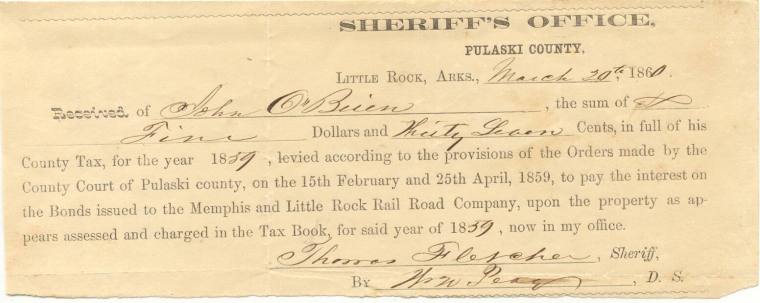 SHERIFF'S OFFICE,
PULASKI COUNTY,
LITTLE ROCK, ARKS., March 20th, 1860.
Received of John O'Brien, the sum of $
Five Dollars and Thirty Seven Cents, in full of his
County Tax, for the year 1859, levied according to the provisions of the Orders made by the
County Court of Pulaski county, on the 15th February and 25th April, 1859, to pay the interest on
the Bonds issued to the Memphis and Little Rock Rail Road Company, upon the property as ap-
pears assessed and charged in the Tax Book, for said year of 1859, now in my office.
Thomas Fletcher, Sheriff,
BY Wm, D. S.